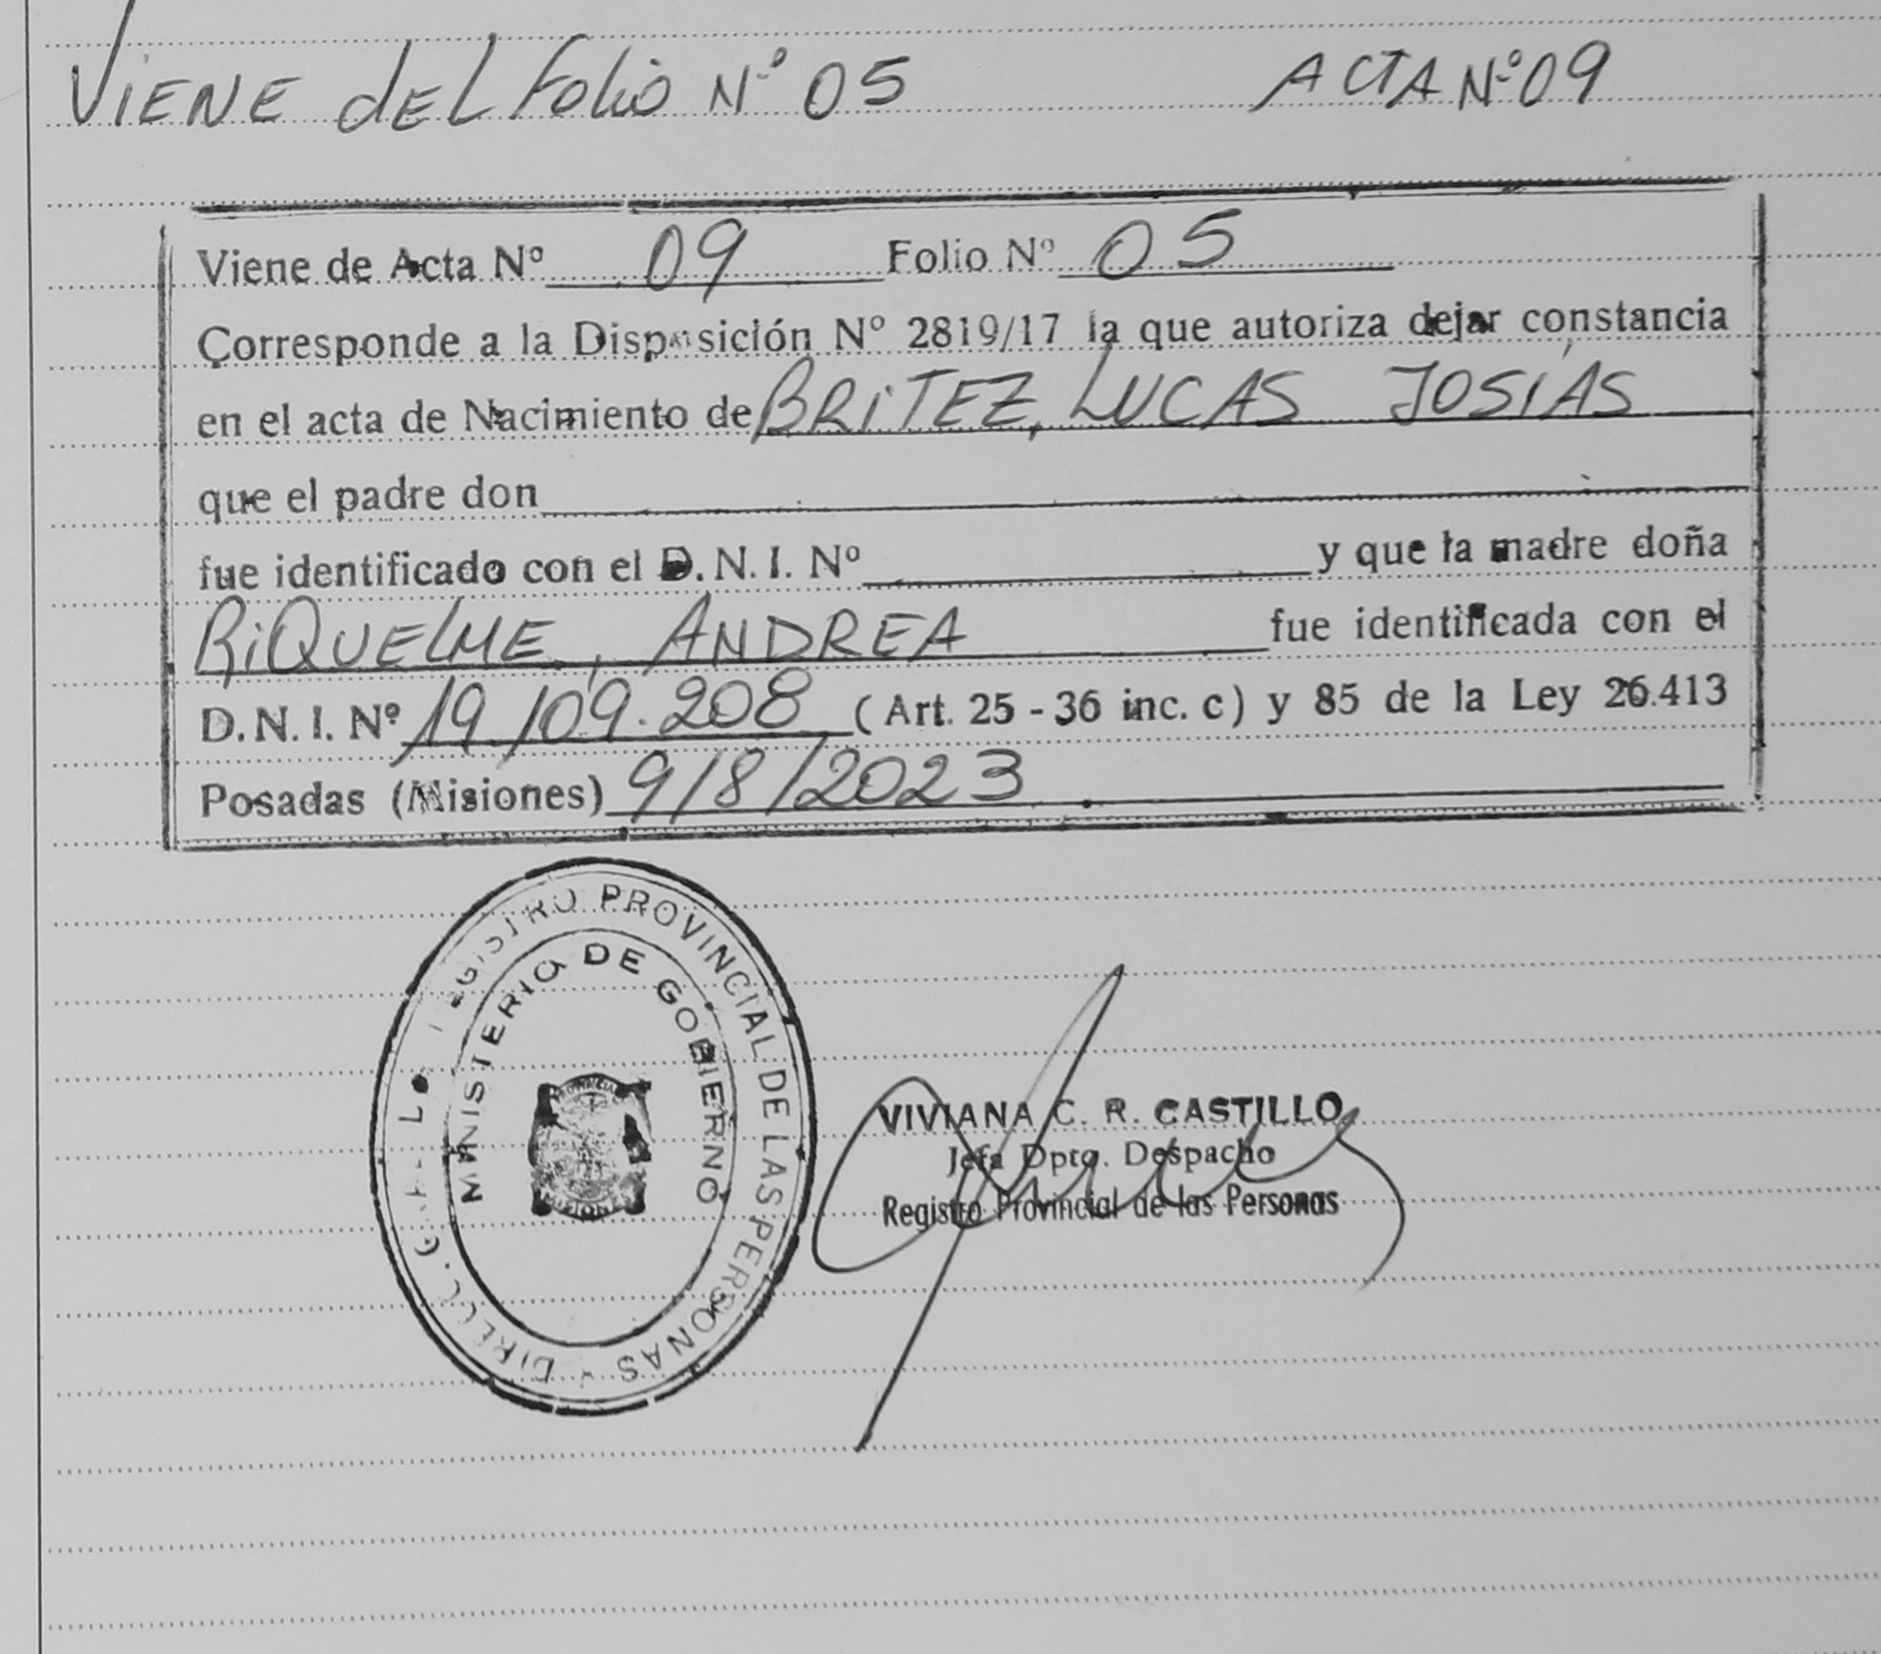 VIENE dEL Folio Nº 05 ACTA Nº 09
Viene de Acta Nº 09 Folio Nº 05
Corresponde a la Disposición Nº 2819/17 la que autoriza dejar constancia
en el acta de Nacimiento de BRITEZ, LUCAS JOSÍAS
que el padre don
fue identificado con el D.N.I. Nº y que la madre doña
RIQUELME, ANDREA fue identificada con el
D.N.I. Nº 19.109.208 (Art. 25 - 36 inc. c) y 85 de la Ley 26.413
Posadas (Misiones) 9/8/2023
REGISTRO PROVINCIAL DE LAS PERSONAS
MINISTERIO DE GOBIERNO
VIVIANA C. R. CASTILLO
Jefa Dpto. Despacho
Registro Provincial de las Personas